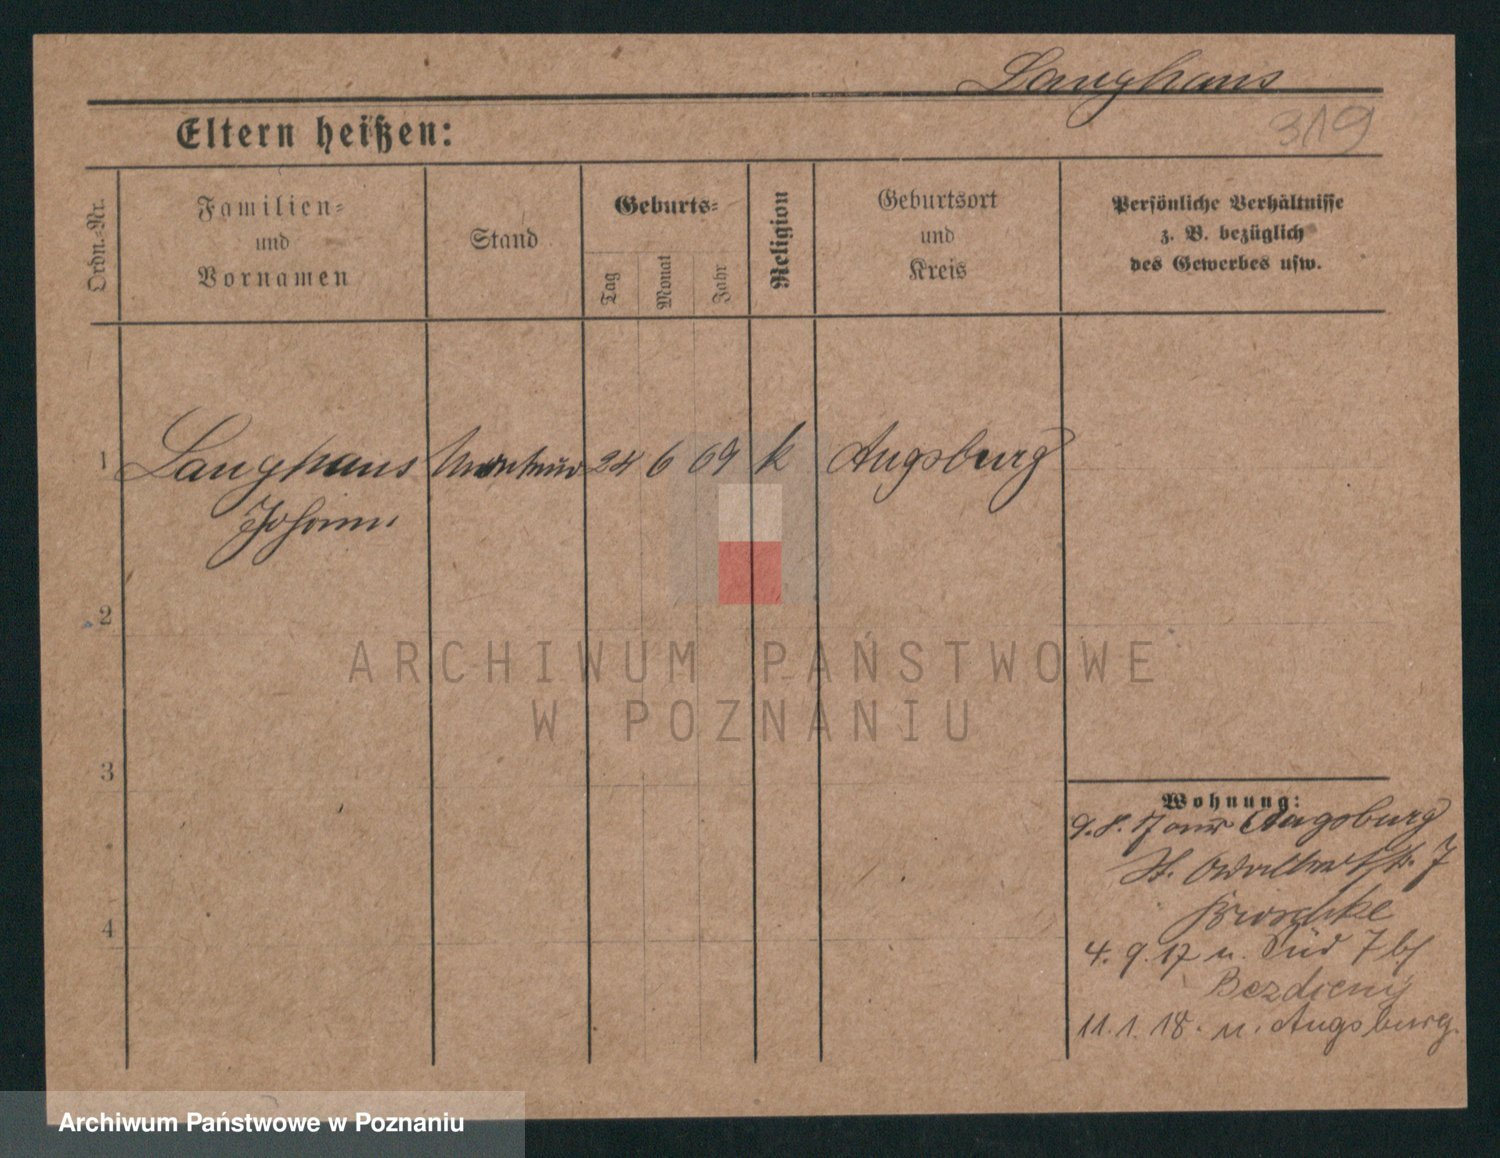 Langhans
319
Eltern heißen:
Ordn.-Nr.
Familien-
und
Vornamen
Stand
Geburts-
Tag
Monat
Jahr
Religion
Geburtsort
und
Kreis
Persönliche Verhältnisse
z. B. bezüglich
des Gewerbes usw.
1 Langhans Monteur 24 6 69 k Augsburg
Johann
2
3
4
Wohnung:
9.8.17 aus Augsburg
St. 7
4.9.17 n. Süd 7 bei
Bezdieny
11.1.18. n. Augsburg.
ARCHIWUM PAŃSTWOWE
W POZNANIU
Archiwum Państwowe w Poznaniu